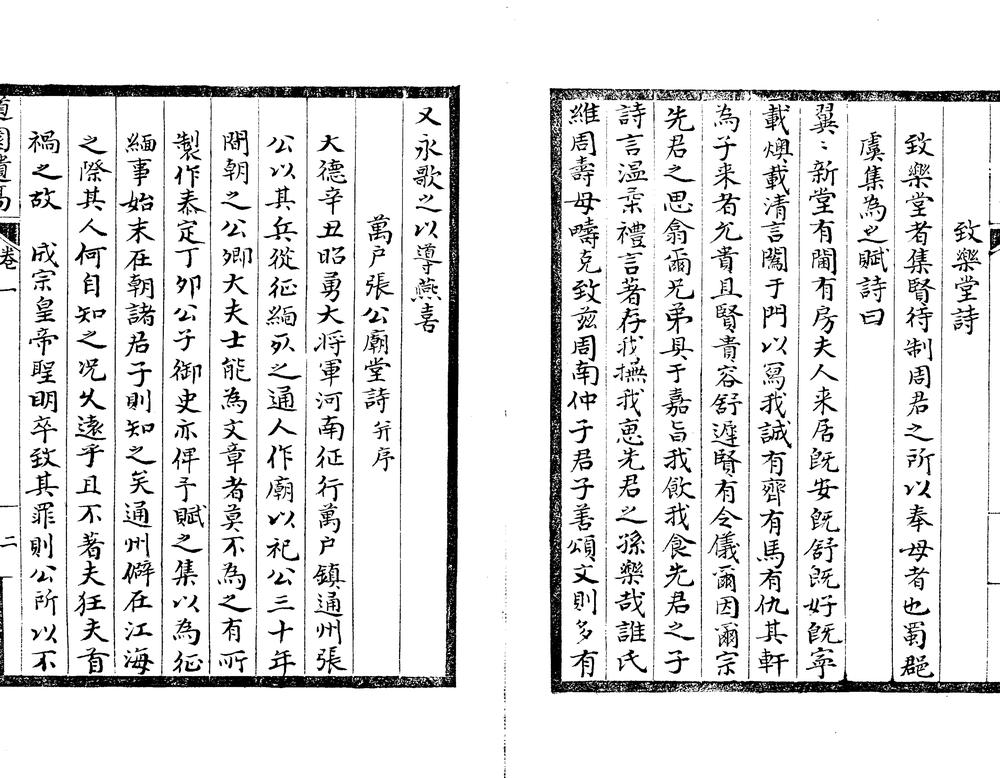 致樂堂詩
致樂堂者集賢待制周君之所以奉母者也蜀郡
虞集為之賦詩曰
翼〻新堂有閫有房夫人来居既安既舒既好既寧
載燠載清言闖于門以寫我誠有齊有馬有仇其軒
為子来者允貴且賢貴容舒遲賢有令儀爾因爾宗
先君之思翕爾兄弟具于嘉旨我飲我食先君之子
詩言温柔禮言著存我撫我恵先君之孫樂哉誰氏
維周壽母疇克致兹周南仲子君子善頌文則多有
又永歌之以導燕喜
萬户張公廟堂詩 并序
大德辛丑昭勇大将軍河南征行萬户鎮通州張
公以其兵從征緬死之通人作廟以祀公三十年
間朝之公卿大夫士能為文章者莫不為之有所
製作泰定丁卯公子御史亦俾予賦之集以為征
緬事始末在朝諸君子則知之矣通州僻在江海
之際其人何自知之况久遠乎且不著夫狂夫首
禍之故 成宗皇帝聖明卒致其罪則公所以不
道園遺稿 卷一 二